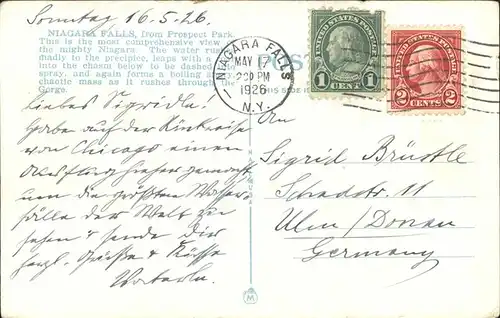 Sonntag 16.5.26.
NIAGARA FALLS, from Prospect Park.
This is the most comprehensive view
the mighty Niagara. The water
madly to the precipice, leaps with a
into the chasm below to be dashed
spray, and again forms a boiling
chaotic mass as it rushes through the
Gorge.
NIAGARA FALLS
MAY 17
2:30 PM
1926
N.Y.
UNITED STATES POSTAGE
1 CENT 1
UNITED STATES POSTAGE
2 CENTS 2
POST
THIS SIDE
Liebes Sigridle!
Habe auf der Rückreise
von Chicago einen
Ausflug hieher gemacht
um die größten Wasser-
fälle der Welt zu
sehen & sende Dir
herzl. Grüße & Küsse
An
Sigrid Brüstle
Schadstr. 11
Ulm / Donau
Germany
M